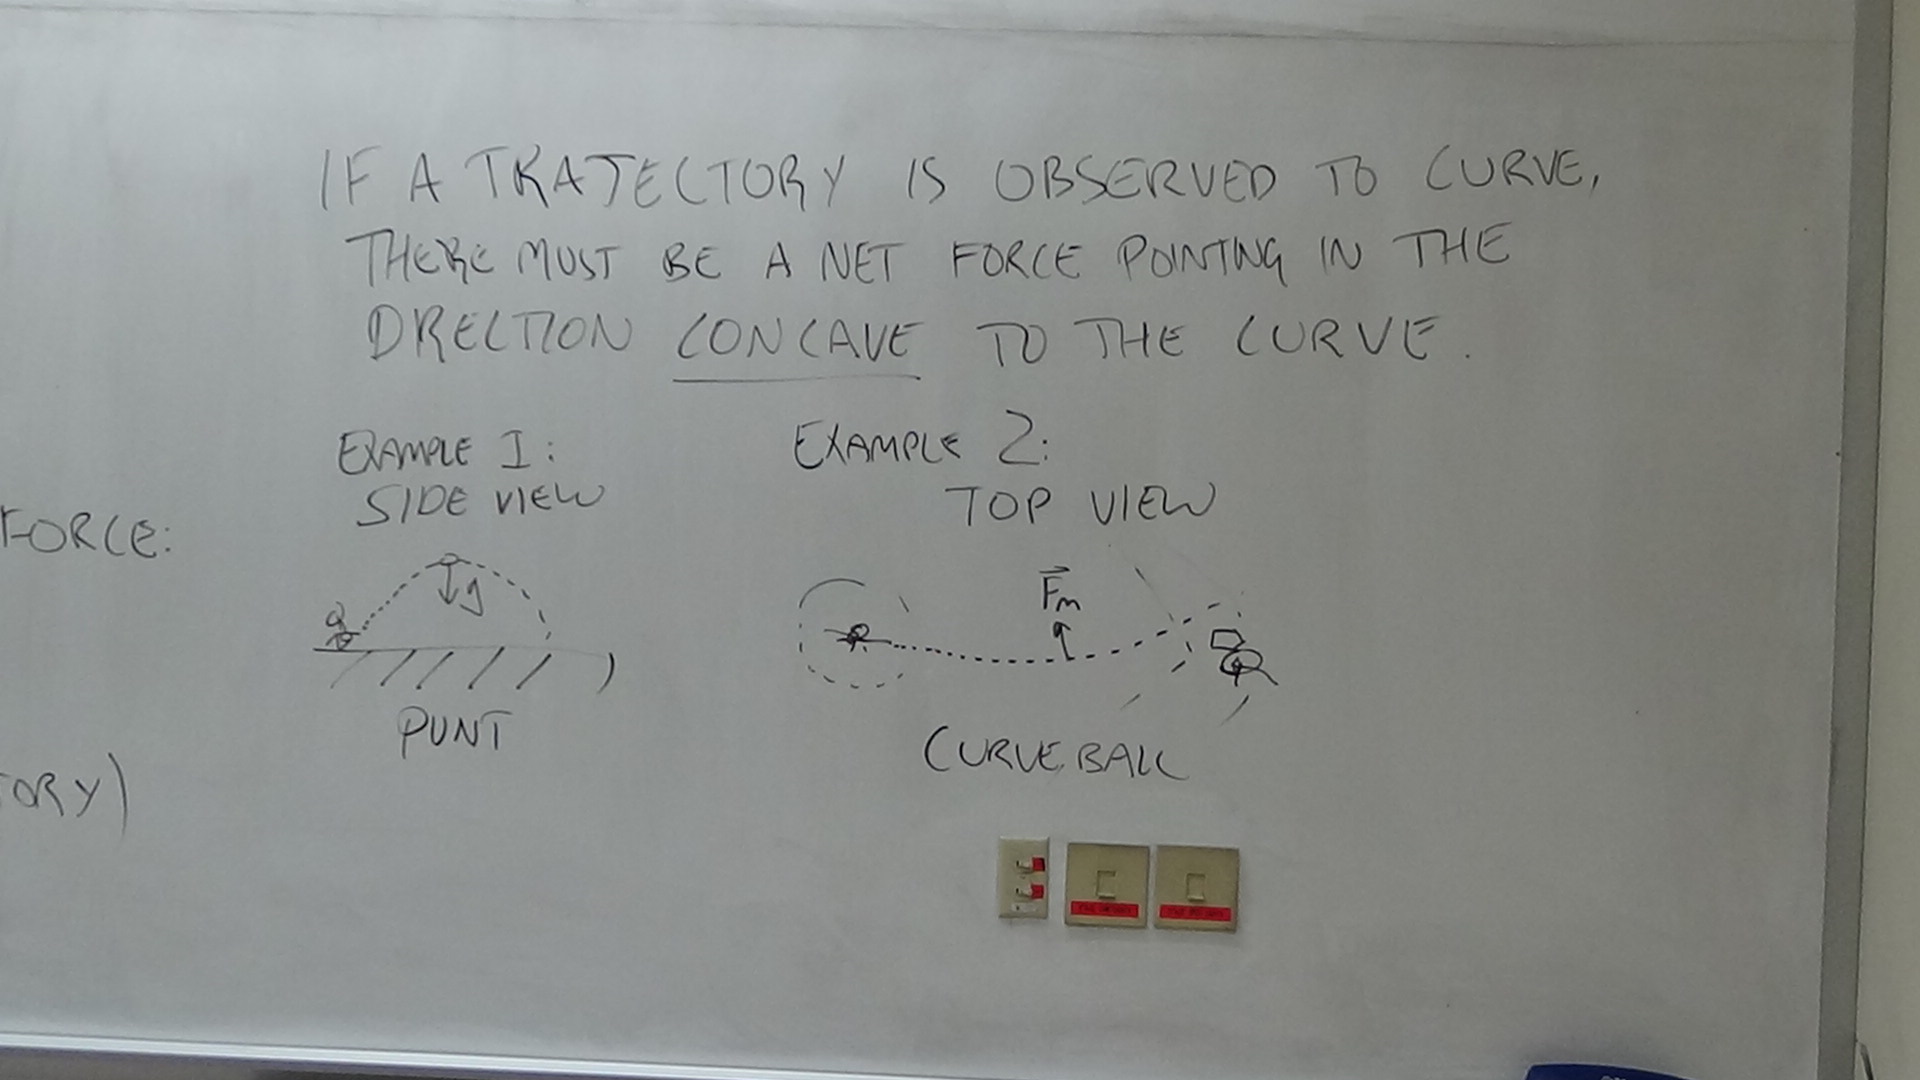 IF A TRAJECTORY IS OBSERVED TO CURVE,
THERE MUST BE A NET FORCE POINTING IN THE
DIRECTION CONCAVE TO THE CURVE.
EXAMPLE 1:
SIDE VIEW
g
PUNT
EXAMPLE 2:
TOP VIEW
Fm
CURVEBALL
FORCE:
TORY)